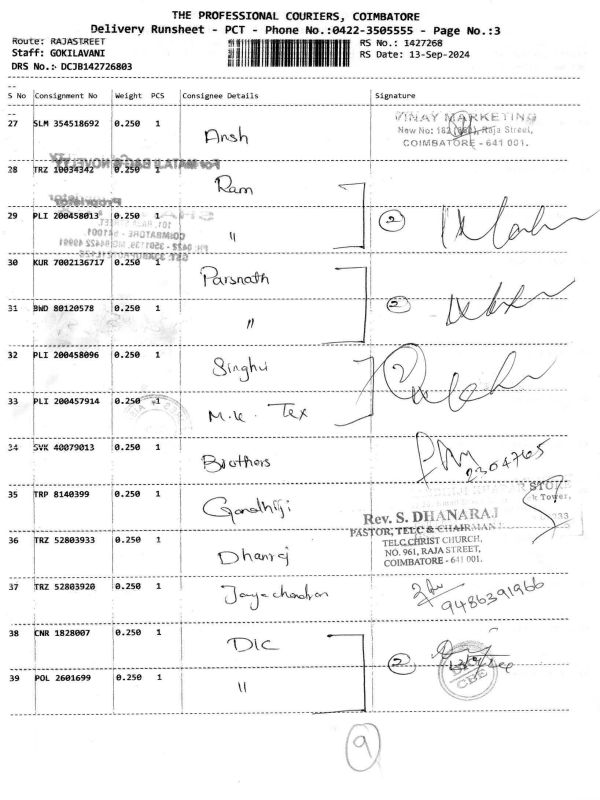 THE PROFESSIONAL COURIERS, COIMBATORE
Delivery Runsheet - PCT - Phone No.:0422-3505555 - Page No.:3
Route: RAJASTREET RS No.: 1427268
Staff: GOKILAVANI RS Date: 13-Sep-2024
DRS No.: DCJB142726803
S No Consignment No Weight PCS Consignee Details Signature
27 SLM 354518692 0.250 1 Ansh
VINAY MARKETING
Raja Street,
COIMBATORE - 641 001.
28 TRZ 10034342 0.250 1 Ram
29 PLI 200458013 0.250 1 " 2
30 KUR 7002136717 0.250 1 Parsnath
31 BWD 80120578 0.250 1 " 2
32 PLI 200458096 0.250 1 Singhvi 2
33 PLI 200457914 0.250 1 M.K. Tex
34 SVK 40079013 0.250 1 Brothers
2304765
35 TRP 8140399 0.250 1 Gandhiji
Rev. S. DHANARAJ
PASTOR, TELC & CHAIRMAN
TELC CHRIST CHURCH,
NO. 961, RAJA STREET,
COIMBATORE - 641 001.
36 TRZ 52803933 0.250 1 Dhanraj
37 TRZ 52803920 0.250 1 Jayachandran
9486391966
38 CNR 1828007 0.250 1 DIC 2
CBE
39 POL 2601699 0.250 1 "
9